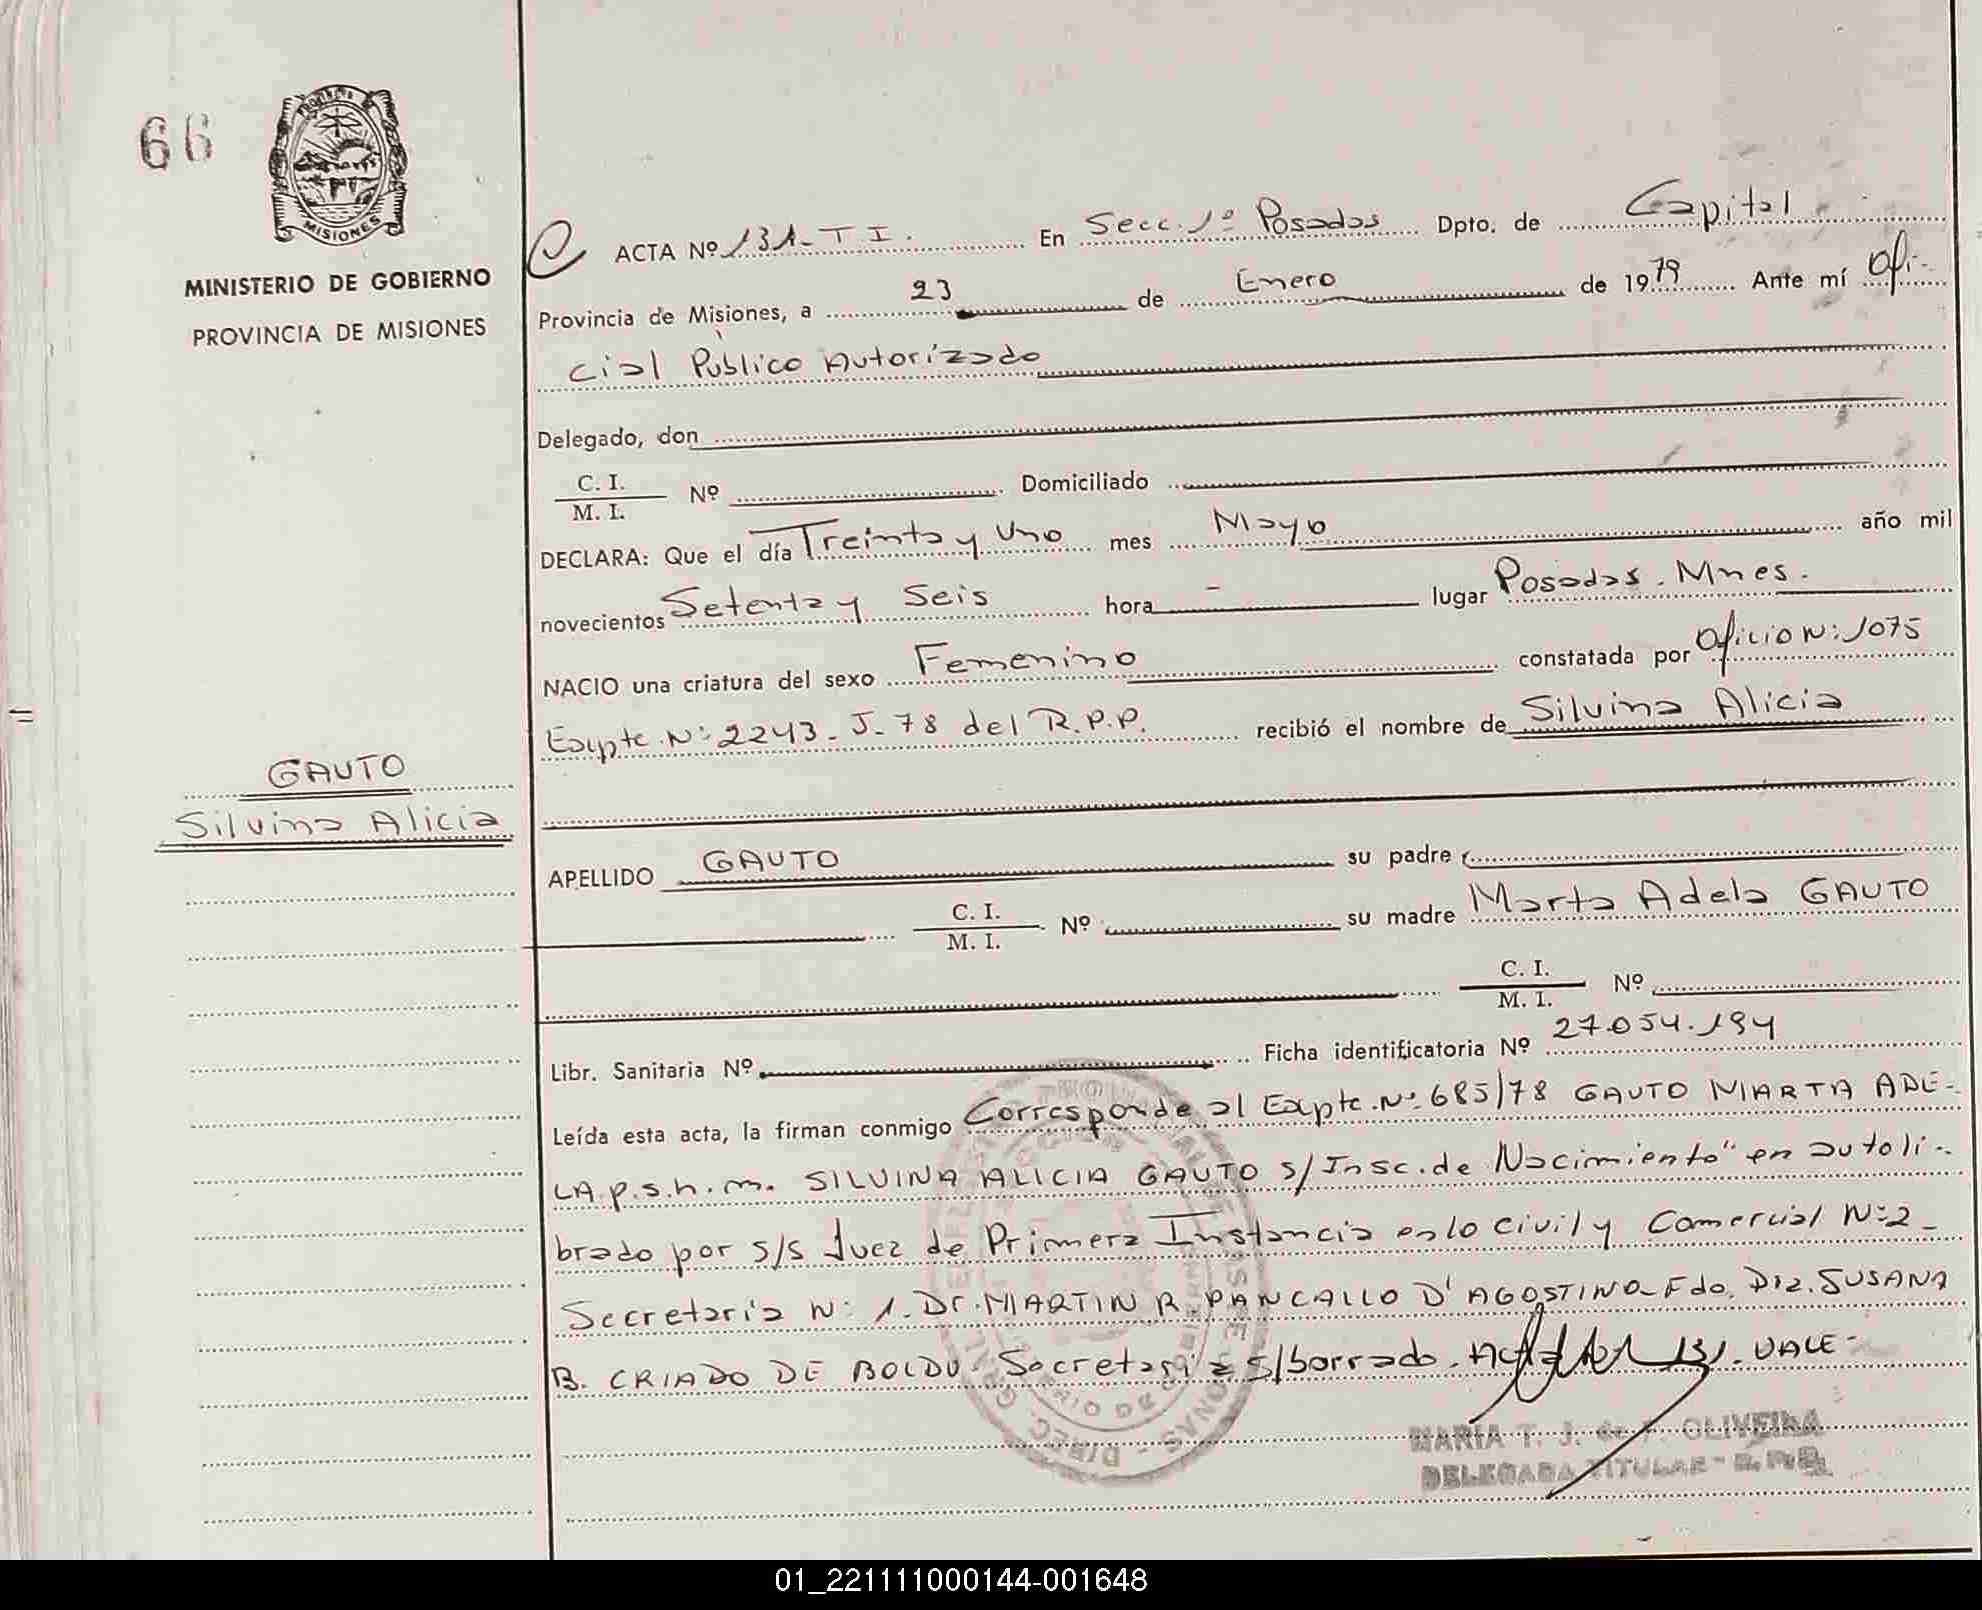 66
PROVINCIA
MISIONES
MINISTERIO DE GOBIERNO
PROVINCIA DE MISIONES
ACTA Nº 131-TI. En Secc. 1º Posadas Dpto. de Capital
Provincia de Misiones, a 23 de Enero de 1979 Ante mí Ofi-
cial Público Autorizado
Delegado, don
C. I.
M. I. Nº Domiciliado
DECLARA: Que el día Treinta y Uno mes Mayo año mil
novecientos Setenta y Seis hora - lugar Posadas. Mnes.
NACIO una criatura del sexo Femenino constatada por Oficio Nº: 1075
Expte. Nº: 2243-J-78 del R.P.P. recibió el nombre de Silvina Alicia
GAUTO
Silvina Alicia
APELLIDO GAUTO su padre
C. I.
M. I. Nº su madre Marta Adela GAUTO
C. I.
M. I. Nº
Libr. Sanitaria Nº Ficha identificatoria Nº 27.054.194
Leída esta acta, la firman conmigo Corresponde al Expte. Nº: 685/78 GAUTO MARTA ADE-
LA. p.s.h.m. SILVINA ALICIA GAUTO s/Insc. de Nacimiento" en auto li-
brado por s/s Juez de Primera Instancia en lo civil y Comercial Nº: 2-
Secretaría Nº: 1. Dr. MARTIN R. PANCALLO D'AGOSTINO- Fdo. Dra. SUSANA
B. CRIADO DE BOLDU. Secretaria s/borrado. Acta 131. VALE-
MARIA T. J. de F. OLIVEIRA
DELEGADA TITULAR - R. P. P.
01_221111000144-001648